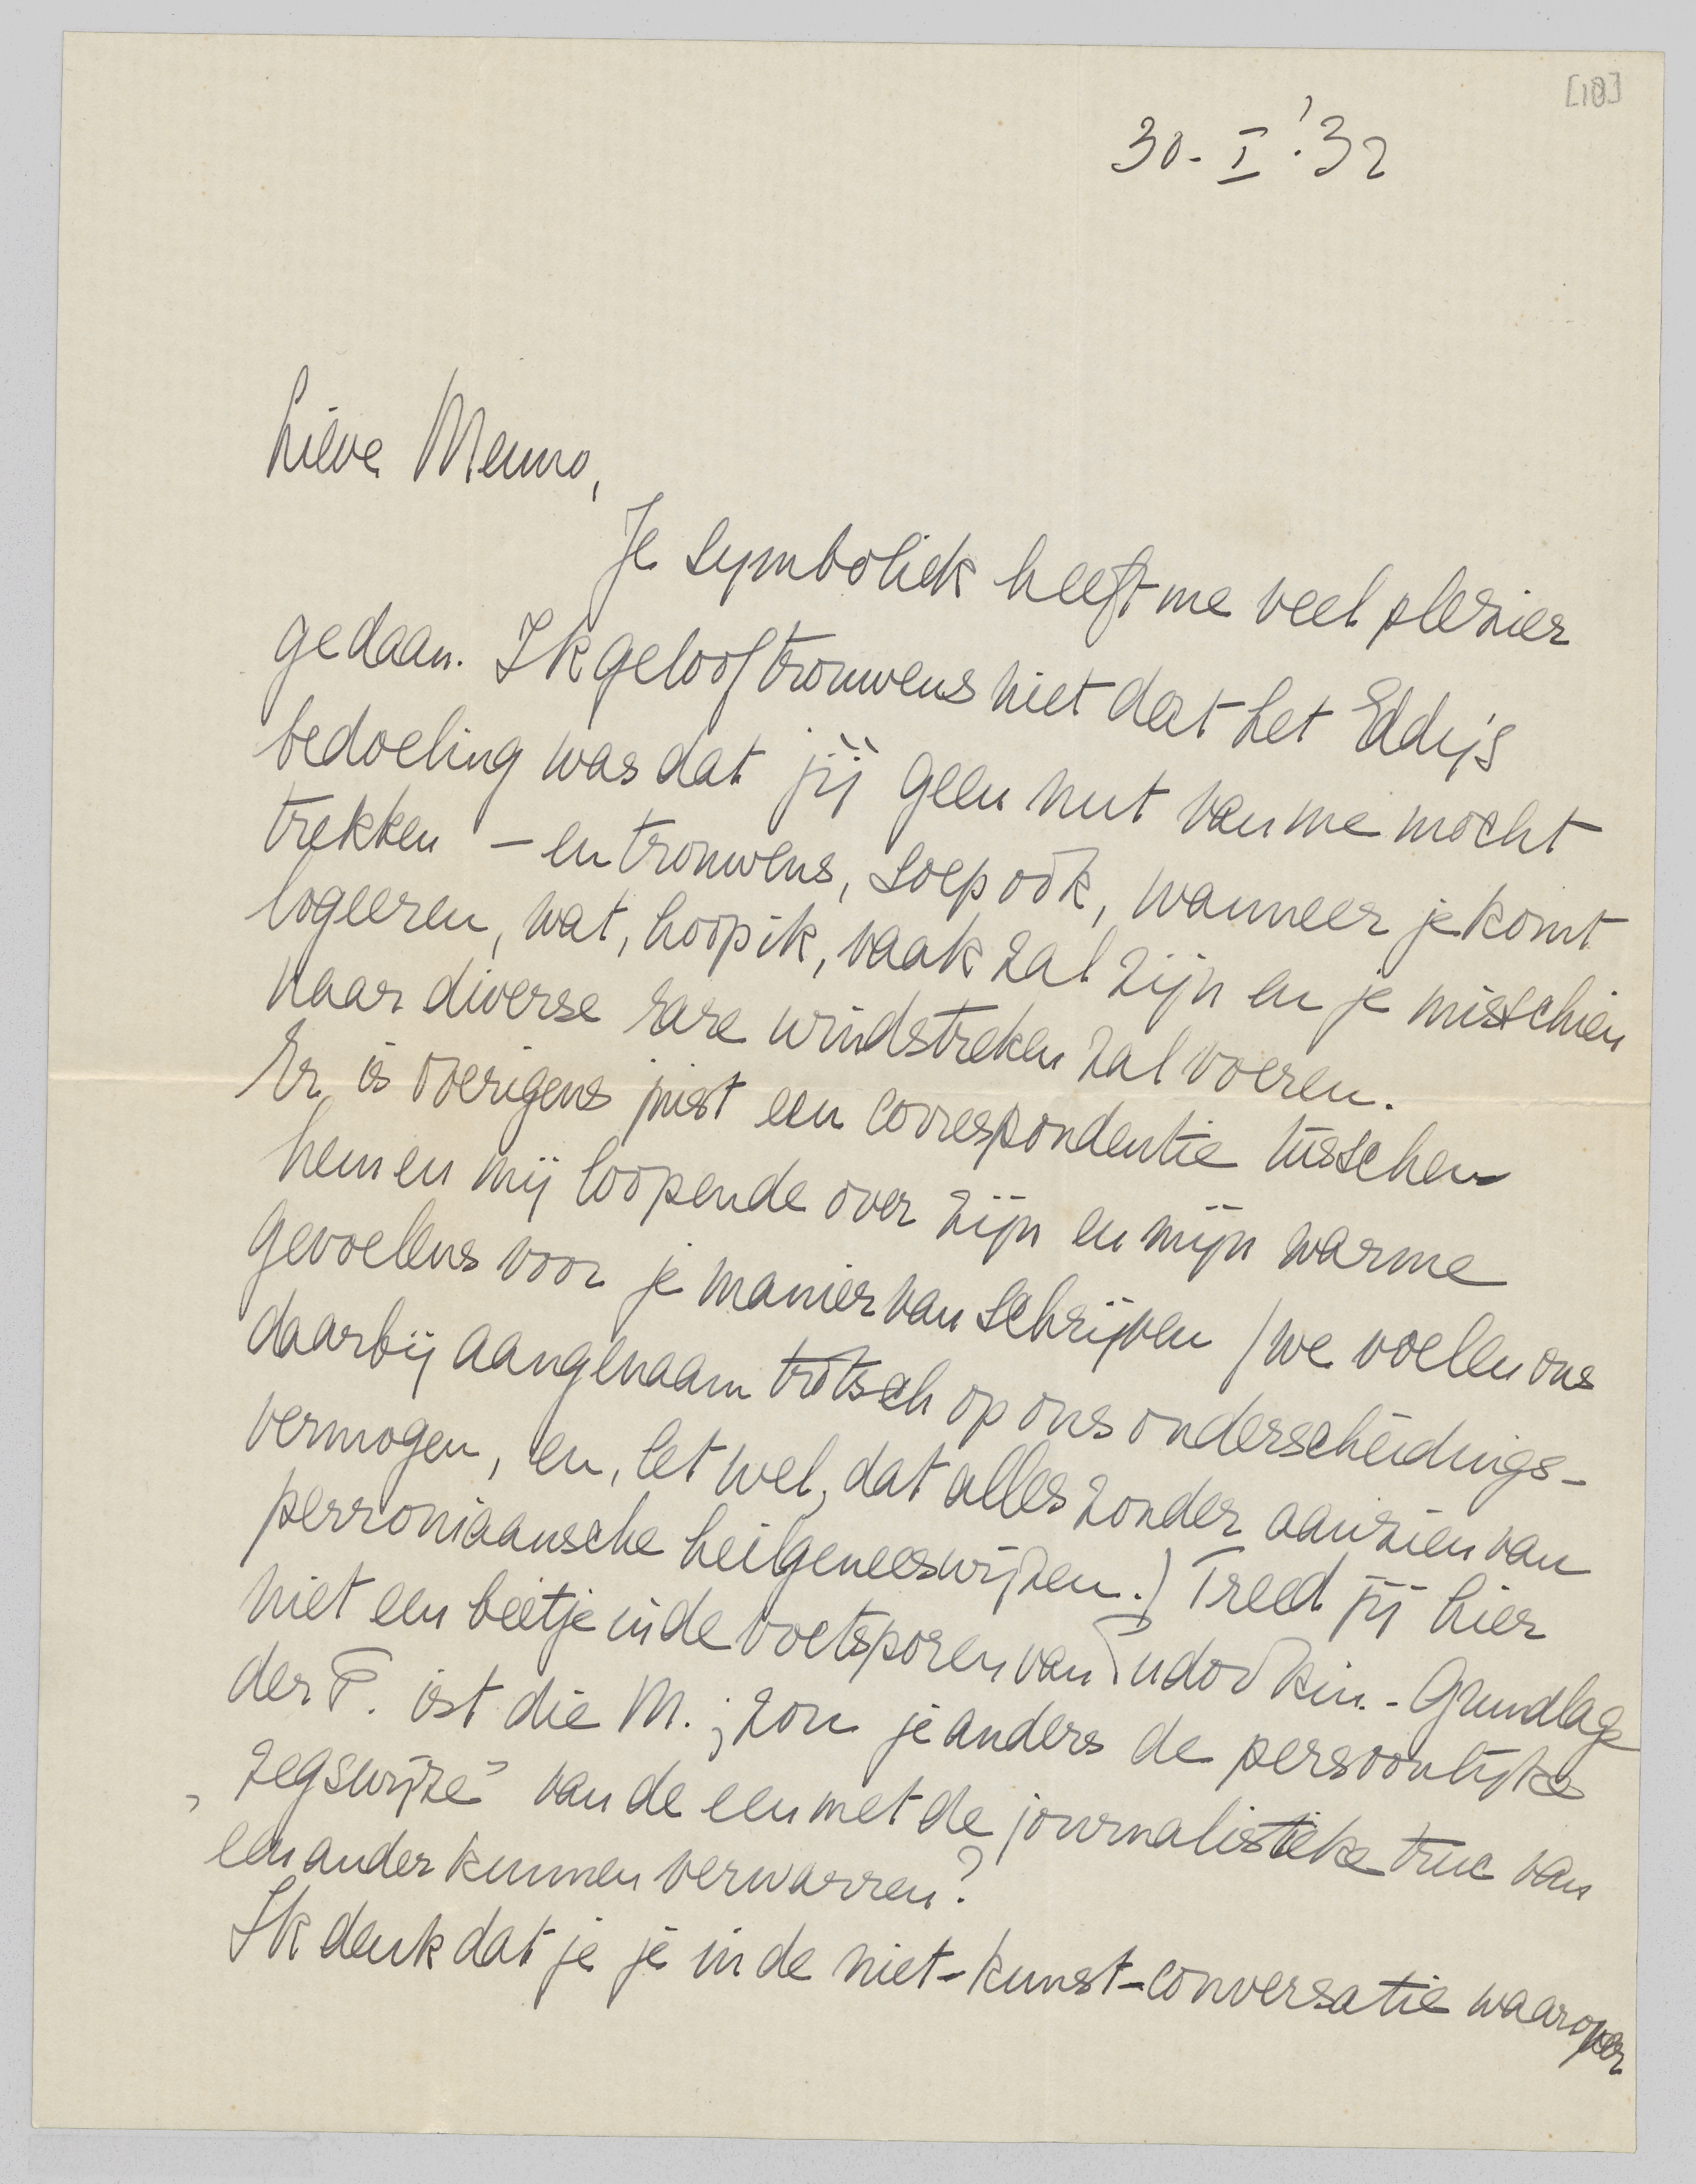 [18]
30. I. '32
Lieve Menno,
Je symboliek heeft me veel plezier
gedaan. Ik geloof trouwens niet dat het Eddy's
bedoeling was dat jìj geen nut van me mocht
trekken – en trouwens, soep ook, wanneer je komt
logeeren, wat, hoop ik, vaak zal zijn en je misschien
naar diverse rare windstreken zal voeren.
Er is overigens juist een correspondentie tusschen
hem en mij loopende over zijn en mijn warme
gevoelens voor je manier van schrijven (we voelen ons
daarbij aangenaam trotsch op ons onderscheidings-
vermogen, en, let wel, dat alles zonder aanzien van
perroniaansche heilgeneeswijzen.) Treed jij hier
niet een beetje in de voetsporen van Pudovkin. - Grundlage
der F. ist die M.; zou je anders de persoonlijke
„zegswijze” van de een met de journalistieke truc van
een ander kunnen verwarren?
Ik denk dat je je in de niet-kunst-conversatie waarover